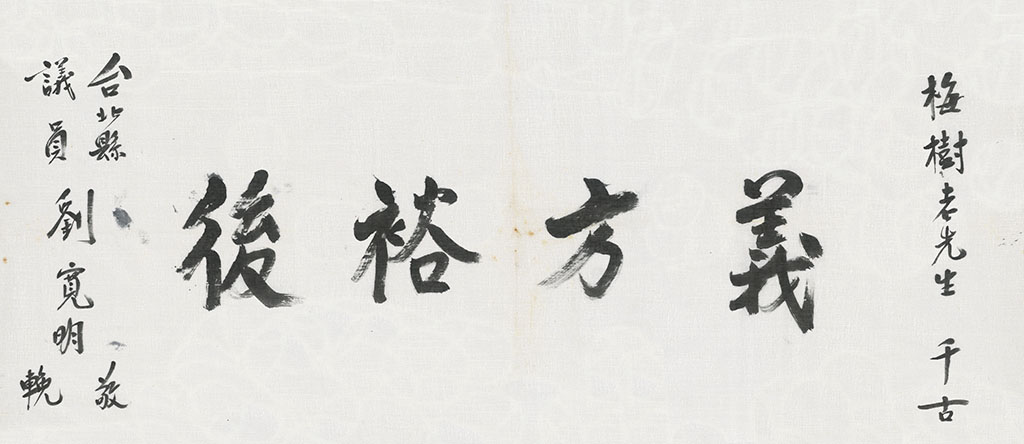 梅樹老先生 千古
義方裕後
台北縣 敬
議員劉寬明 輓